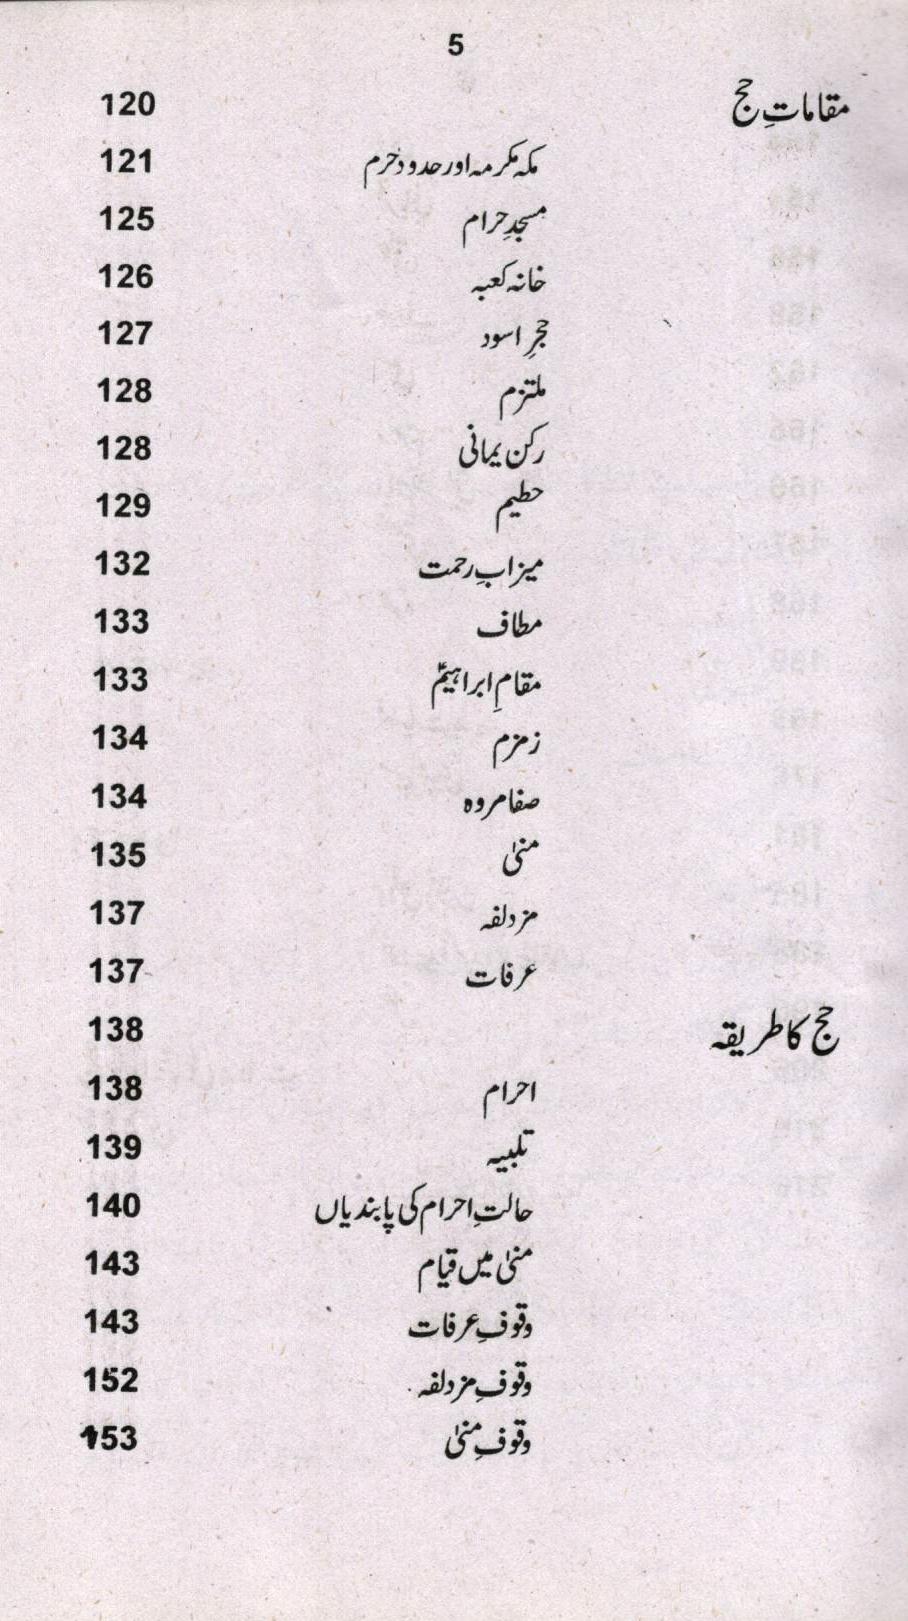 5
مقاماتِ حج 120
مکہ مکرمہ اور حدود حرم 121
مسجدِ حرام 125
خانہ کعبہ 126
حجرِ اسود 127
ملتزم 128
رکن یمانی 128
حطیم 129
میزابِ رحمت 132
مطاف 133
مقامِ ابراہیمؑ 133
زمزم 134
صفا مروہ 134
منیٰ 135
مزدلفہ 137
عرفات 137
حج کا طریقہ 138
احرام 138
تلبیہ 139
حالتِ احرام کی پابندیاں 140
منیٰ میں قیام 143
وقوفِ عرفات 143
وقوفِ مزدلفہ 152
وقوفِ منیٰ 153